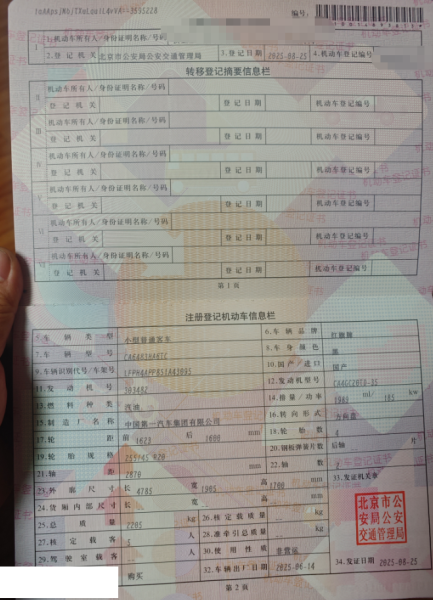 编号:
1.机动车所有人/身份证明名称/号码
2.登记机关 北京市公安局公安交通管理局 3.登记日期 2025-08-25 4.机动车登记编号
转移登记摘要信息栏
Ⅱ 机动车所有人/身份证明名称/号码
登记机关 登记日期 机动车登记编号
Ⅲ 机动车所有人/身份证明名称/号码
登记机关 登记日期 机动车登记编号
机动车所有人/身份证明名称/号码
登记机关 登记日期 机动车登记编号
机动车所有人/身份证明名称/号码
登记机关 登记日期 机动车登记编号
机动车所有人/身份证明名称/号码
登记机关 登记日期 机动车登记编号
机动车所有人/身份证明名称/号码
登记机关 登记日期 机动车登记编号
第1页
注册登记机动车信息栏
5.车辆类型 小型普通客车 6.车辆品牌 红旗牌
7.车辆型号 8.车身颜色 黑
9.车辆识别代号/车架号 10.国产/进口 国产
11.发动机号 12.发动机型号
13.燃料种类 汽油 14.排量/功率 1985 ml/ 185 kw
15.制造厂名称 中国第一汽车集团有限公司 16.转向形式 方向盘
17.轮距 前 1623 后 1600 mm 18.轮胎数 4
19.轮胎规格 20.钢板弹簧片数 后轴 片
21.轴距 2870 mm 22.轴数 2
23.外廓尺寸 长 4785 宽 1905 高 1700 mm 33.发证机关章
24.货厢内部尺寸 长 宽 高 mm
25.总质量 2205 kg 26.核定载质量 kg
27.核定载客 5 人 28.准牵引总质量 kg
29.驾驶室载客 人 30.使用性质 非营运
购买 32.车辆出厂日期 2025-06-14 34.发证日期 2025-08-25
北京市公
安局公安
交通管理局
第2页